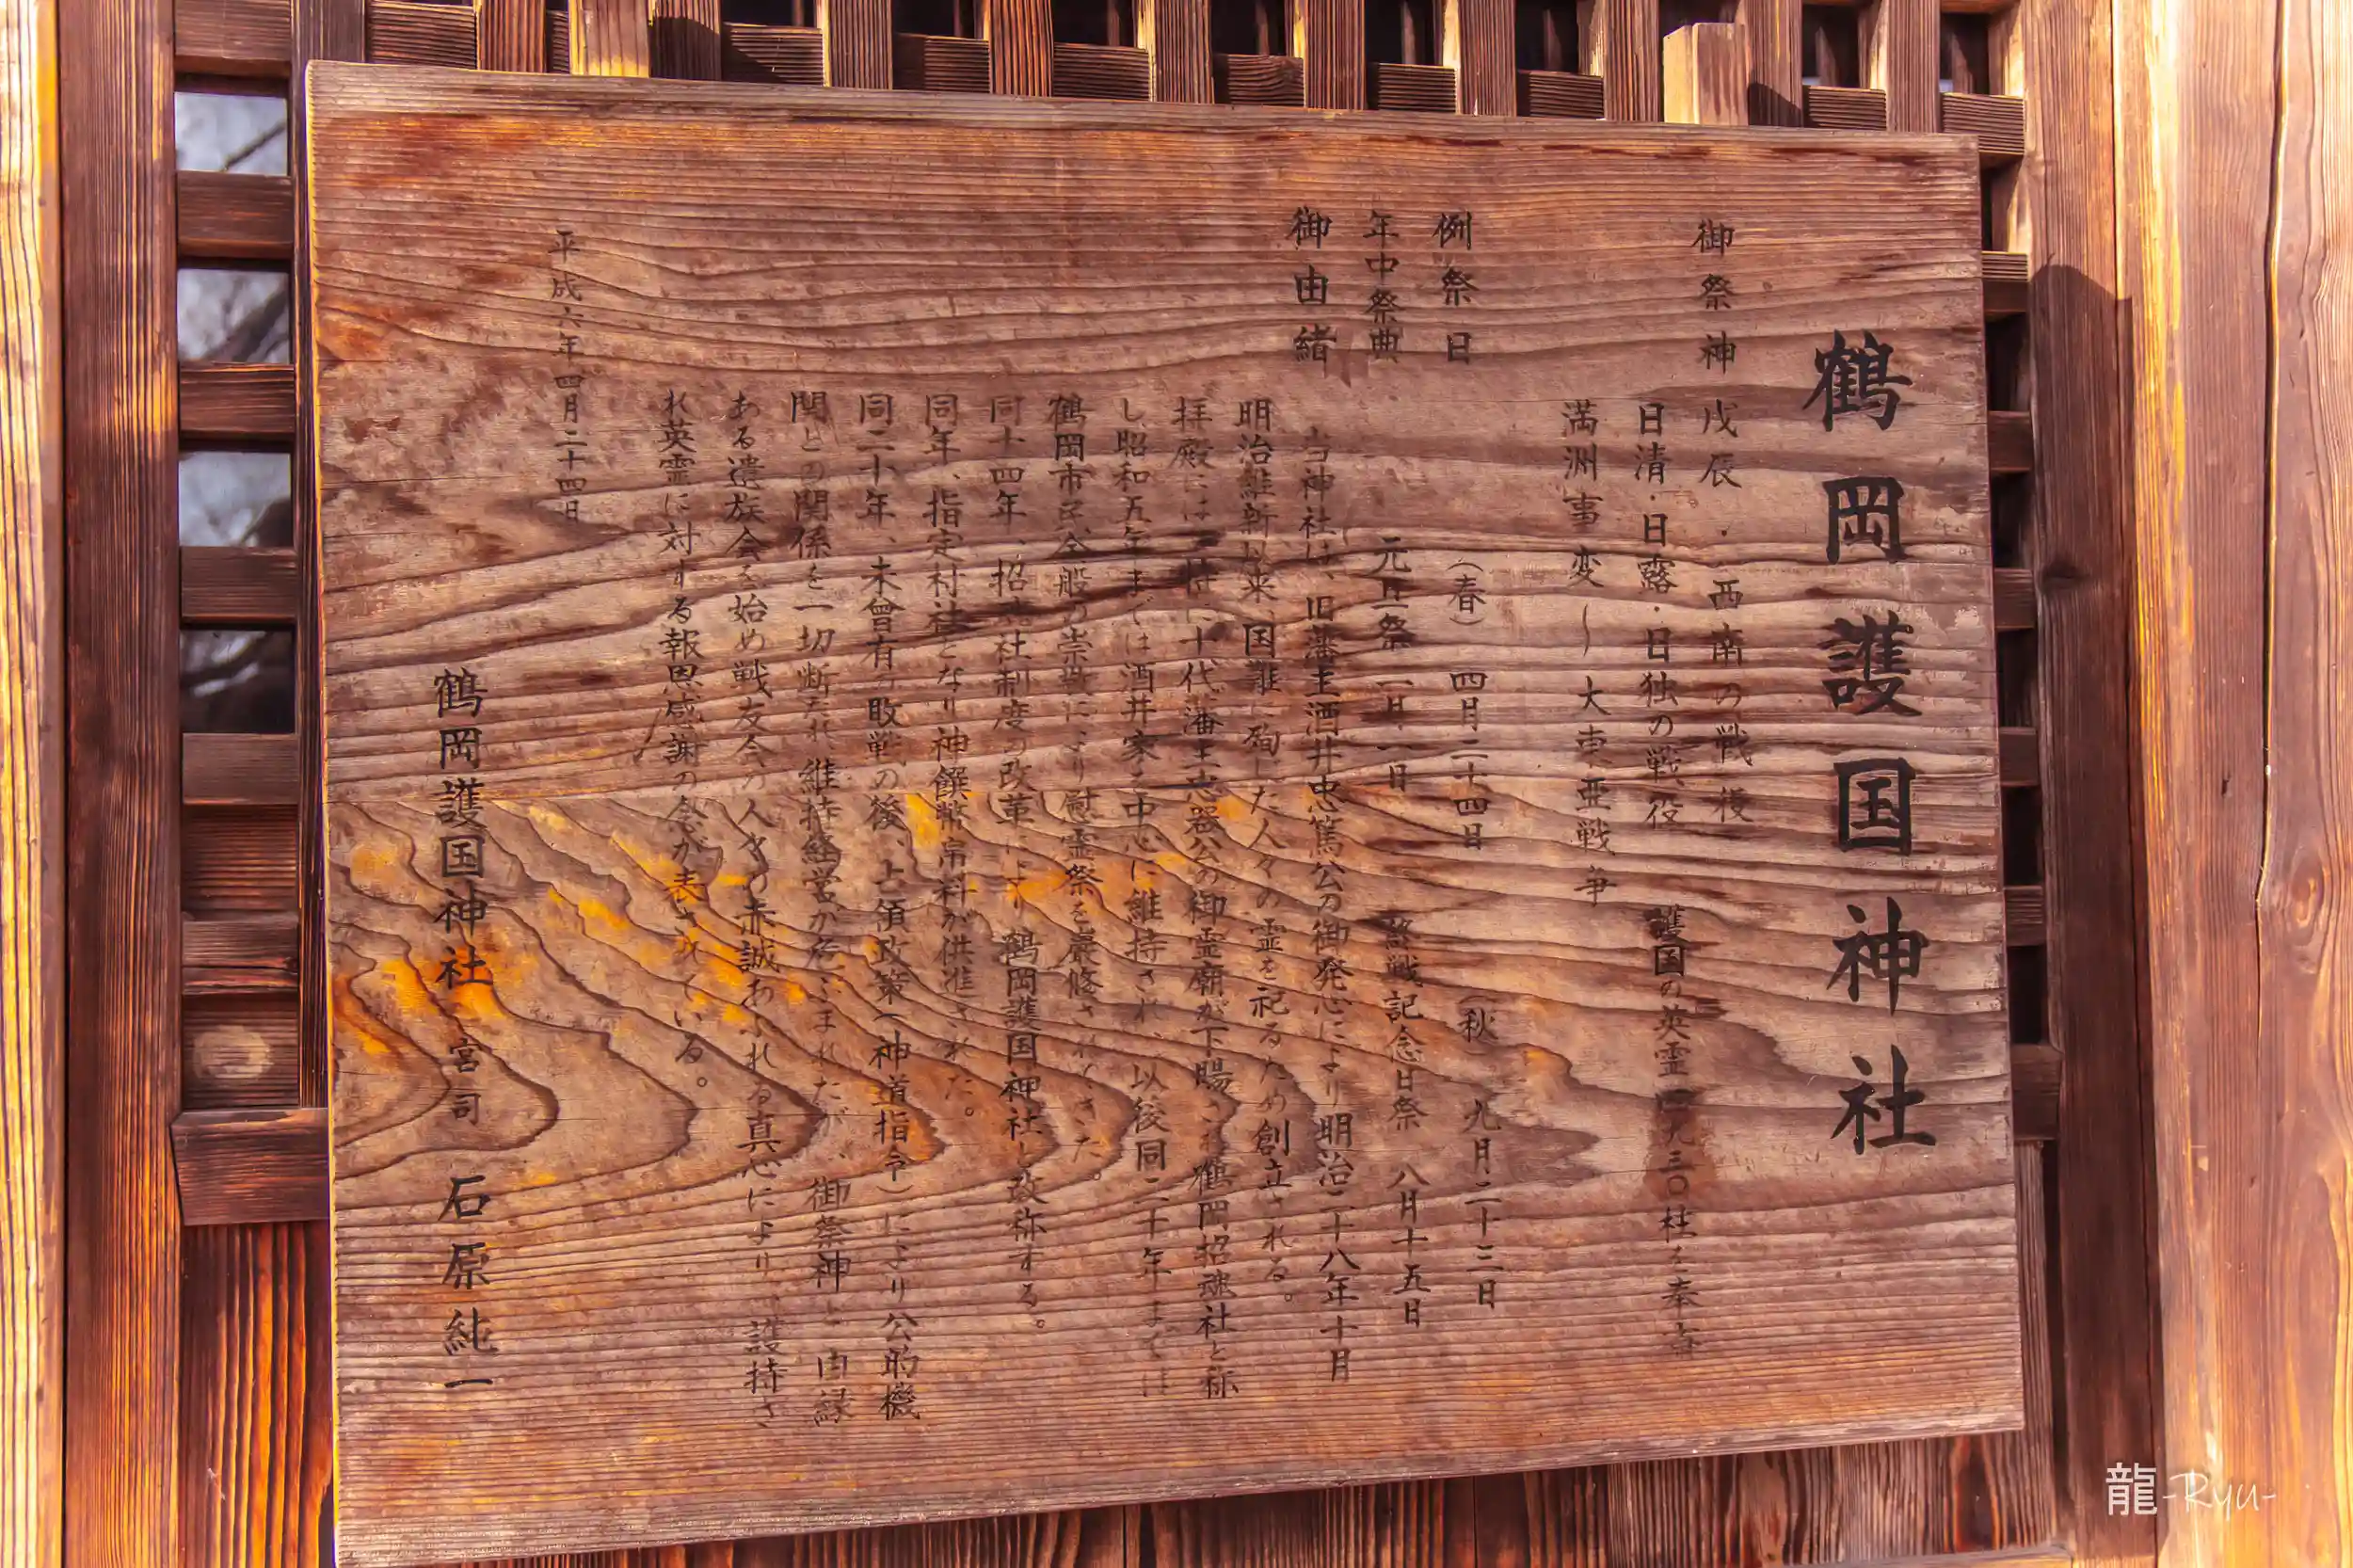 鶴岡護国神社
御祭神 戊辰・西南の戦役
日清・日露・日独の戦役 護国の英霊 三〇柱を奉斎
満洲事変〜大東亜戦争
例祭日 (春) 四月二十四日 (秋) 九月二十三日
年中祭典 元旦祭 一月一日 終戦記念日祭 八月十五日
御由緒
当神社は、旧藩主酒井忠篤公の御発心により明治二十八年十月
明治維新以来、国難に殉じた人々の霊を祀るため創立される。
拝殿には、特に十代藩主忠器公の御霊廟が下賜され鶴岡招魂社と称
し昭和五年までは酒井家を中心に維持され、以後同二十年までは
鶴岡市民全般の崇敬により慰霊祭を厳修されてきた。
同十四年、招魂社制度の改革により鶴岡護国神社と改称する。
同年、指定村社となり神饌幣帛料が供進された。
同二十年、未曾有の敗戦の後、占領政策(神道指令)により公的機
関との関係を一切断たれ、維持経営が危ぶまれたが、御祭神と由縁
ある遺族会を始め戦友会の人々の赤誠あふれる真心により、護持さ
れ英霊に対する報恩感謝の念が表されている。
平成六年四月二十四日
鶴岡護国神社 宮司 石原純一
龍-Ryu-